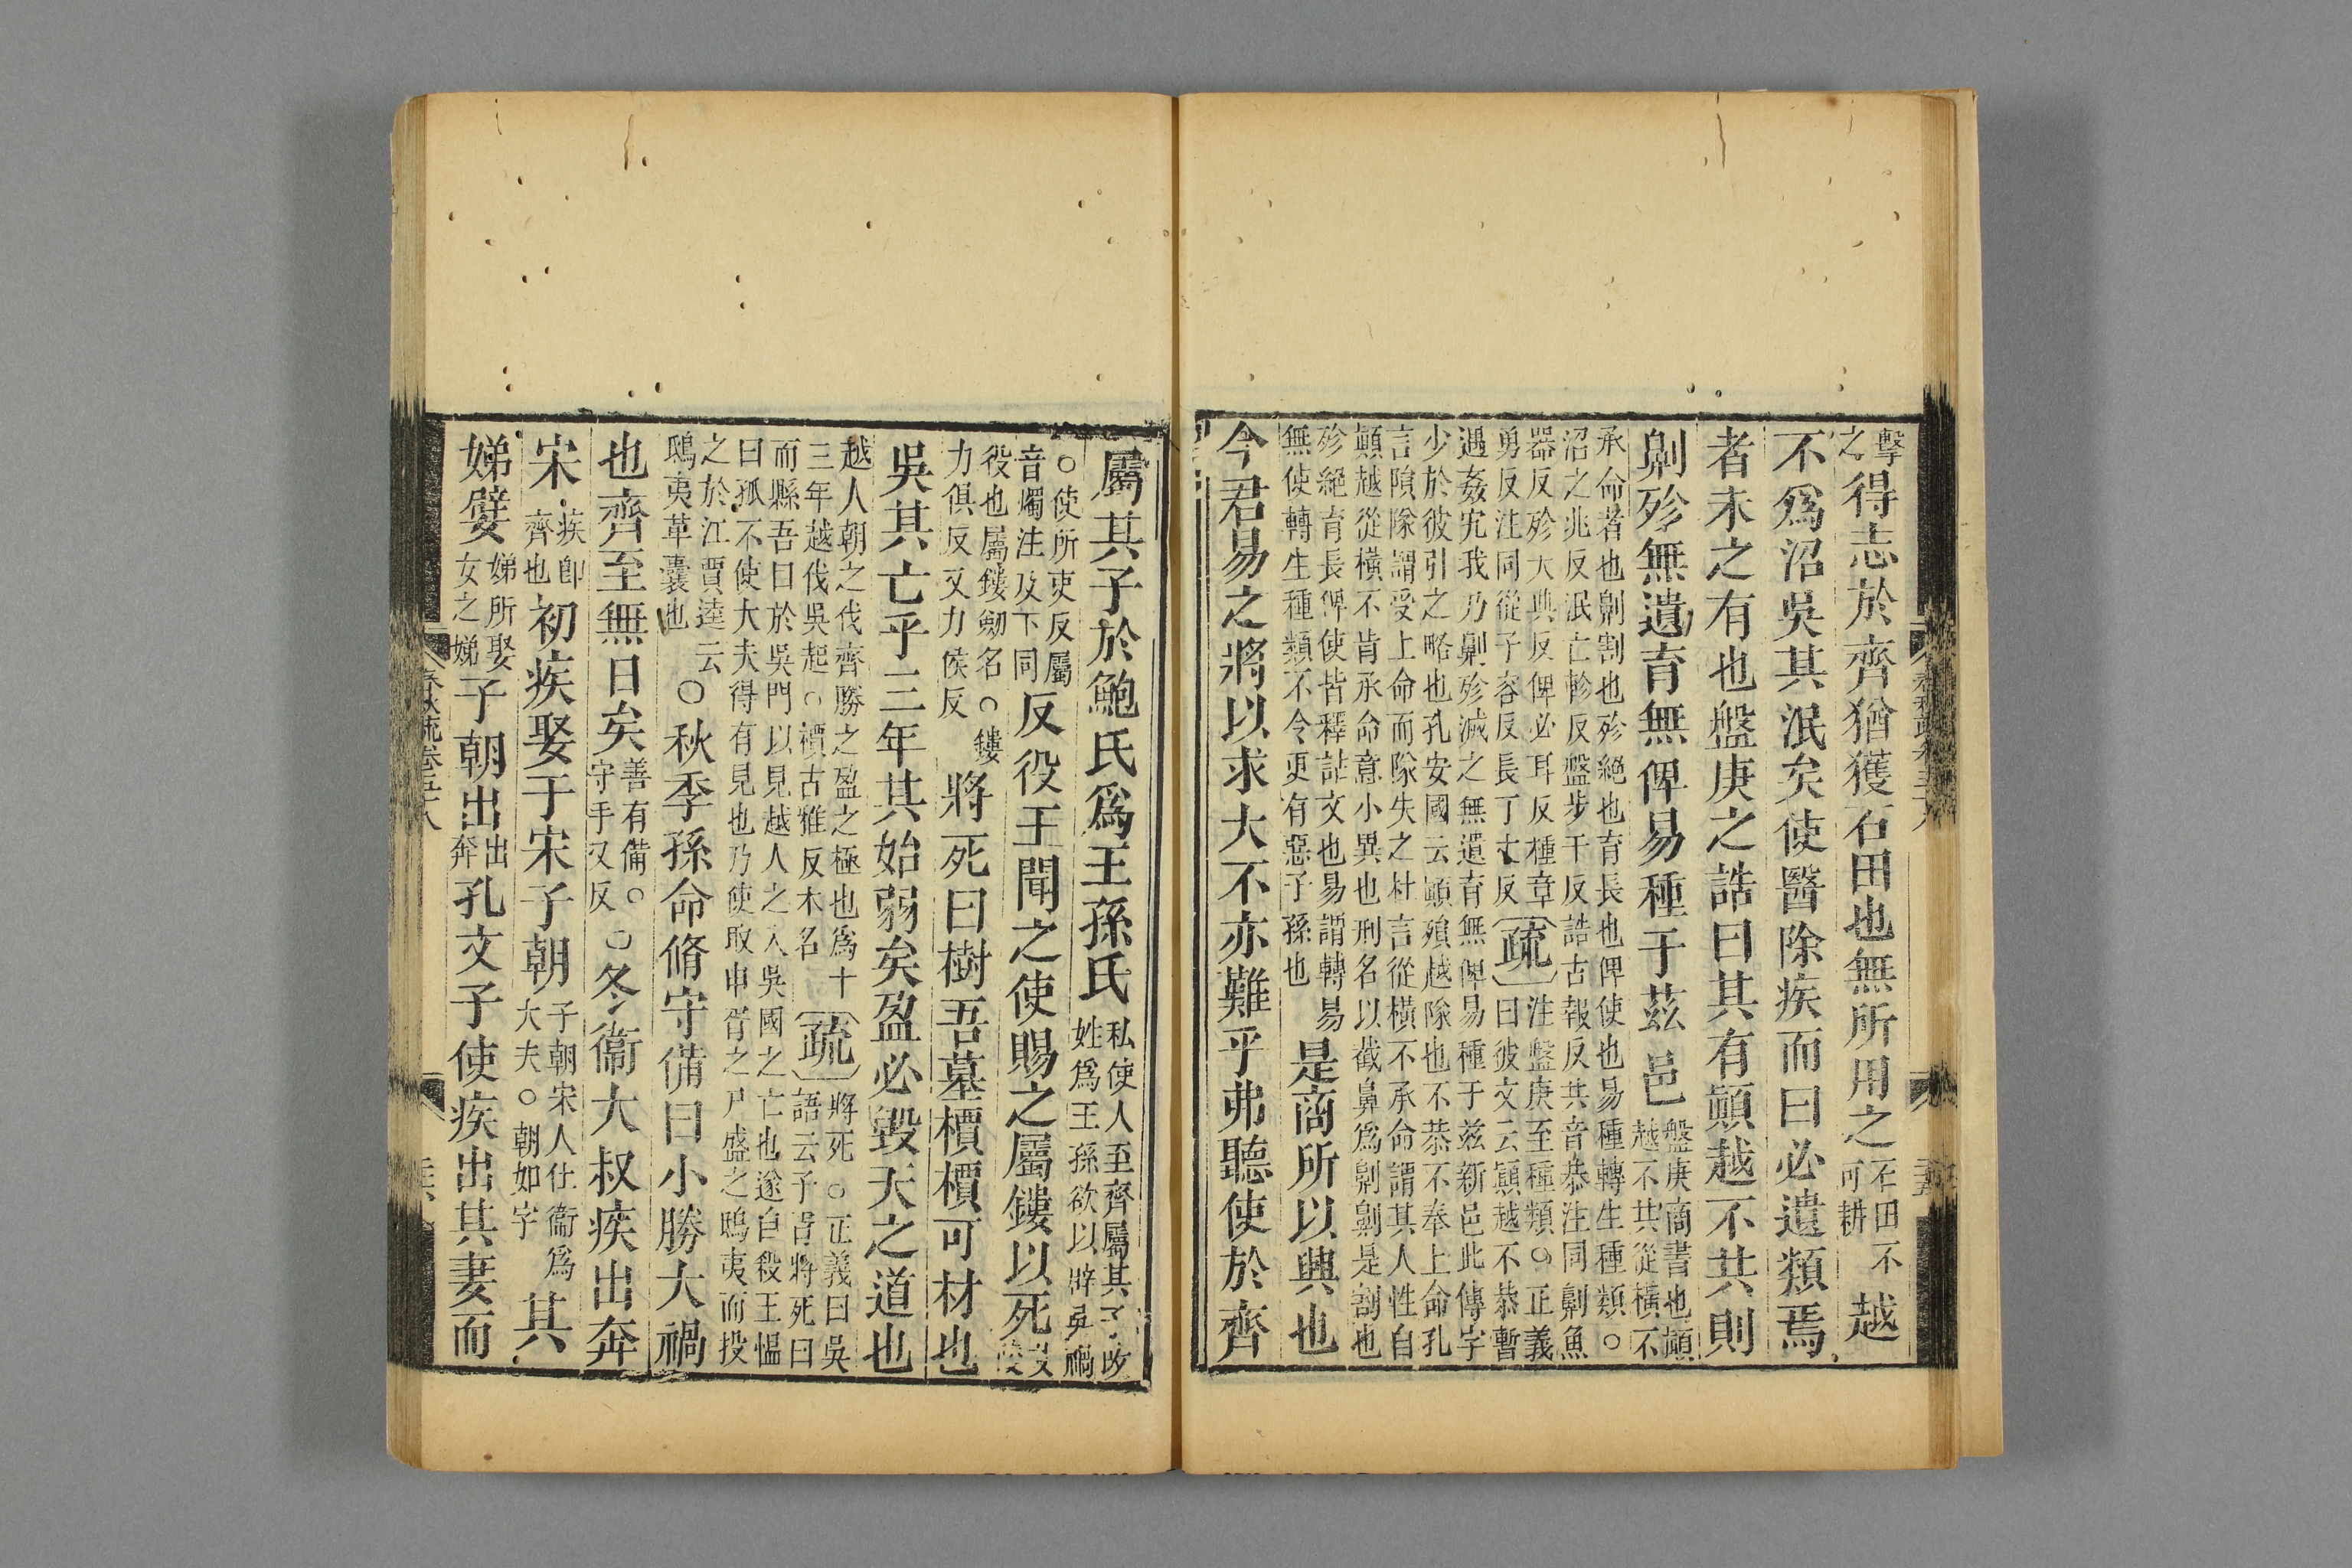 擊之得志於齊猶獲石田也無所用之石田不可耕越
不爲沼吳其泯矣使醫除疾而曰必遺類焉
者未之有也盤庚之誥曰其有顚越不共則
劓殄無遺育無俾易種于茲邑盤庚商書也顚越不共從橫不
承命者也劓割也殄絕也育長也俾使也易種轉生種類○
沼之兆反泯亡軫反盤步干反誥古報反共音恭注同劓魚
器反殄大典反俾必耳反種章
勇反注同從子容反長丁丈反
疏
注盤庚至種類○正義
曰彼文云顚越不恭暫
遇姦宄我乃劓殄滅之無遺育無俾易種于茲新邑此傳字
少於彼引之略也孔安國云顚殞越隊也不恭不奉上命孔
言隕隊謂受上命而隊失之杜言從橫不承命謂其人性自
顚越從橫不肯承命意小異也刑名以截鼻爲劓劓是割也
殄絕育長俾使皆釋詁文也易謂轉易
無使轉生種類不令更有惡子孫也
是商所以興也
今君易之將以求大不亦難乎弗聽使於齊
屬其子於鮑氏爲王孫氏私使人至齊屬其子改姓爲王孫欲以辟吳禍
○使所吏反屬音燭注及下同反役王聞之使賜之屬鏤以死
役也屬鏤劒名○鏤力俱反又力侯反將死曰樹吾墓檟檟可材也
吳其亡乎三年其始弱矣盈必毀天之道也
越人朝之伐齊勝之盈之極也爲十
三年越伐吳起○檟古雅反木名
疏
將死○正義曰吳
語云子胥將死曰
而縣吾目於吳門以見越人之入吳國之亡也遂自殺王慍
曰孤不使大夫得有見也乃使取申胥之尸盛之鴟夷而投
之於江賈逵云鴟夷革囊也○秋季孫命脩守備曰小勝大禍
也齊至無日矣善有備○守手又反○冬衞大叔疾出奔
宋疾卽齊也初疾娶于宋子朝子朝宋人仕衞爲大夫○朝如字其
娣嬖娣所娶女之娣子朝出出奔孔文子使疾出其妻而
春秋疏卷五十八